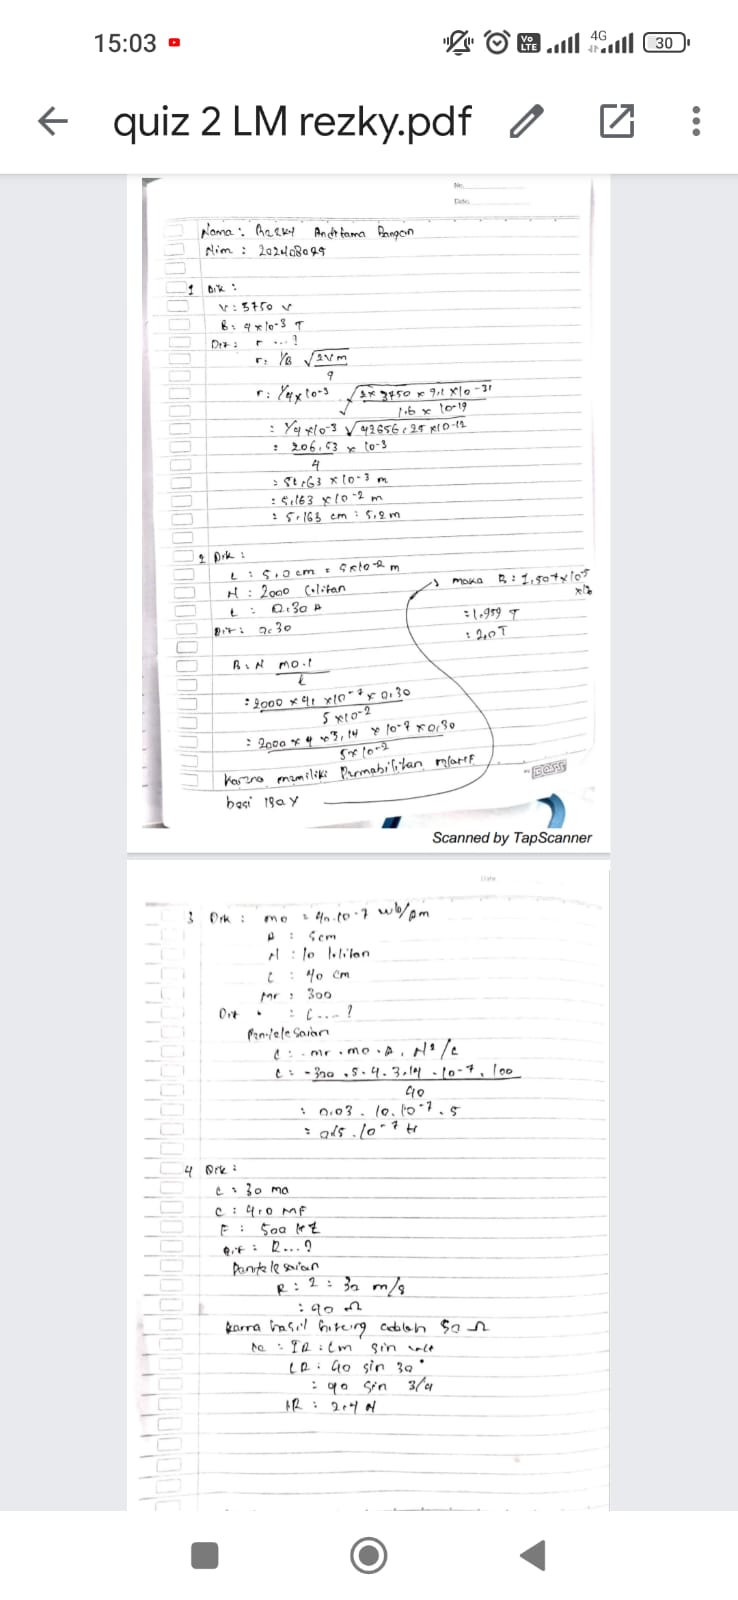 15:03
Vo LTE 4G 30
quiz 2 LM rezky.pdf
No.
Date.
Nama : Rezky Anditama Bangun
Nim :
1 Dik :
V : 3750 V
B : 4 x 10-3 T
Dit : r ...?
r : 1/B √2Vm
q
r : 1/4x10-3 √2x 3750 x 9,1 x10-31
1.6 x 10-19
: 1/4x10-3 √42656,25 x10-12
: 206,53 x 10-3
4
: 51,63 x10-3 m
: 5,163 x10-2 m
: 5,163 cm : 5,2 m
2 Dik :
L : 5,0 cm = 5x10-2 m
N : 2000 Lilitan
I : 0.30 A
Dit : 0.30
B : N mo.I
l
: 2000 x 4π x10-7 x 0,30
5 x10-2
: 2000 x 4 x3,14 x 10-7 x0,30
5x10-2
Karena memiliki Permabilitan relatif
besi 130
maka B :
=1.959 T
: 2,0T
Scanned by TapScanner
Date
3 Dik : mo = 4π.10-7 wb/Am
A : 5cm
N : 10 lilitan
L : 40 cm
mr : 300
Dit : L...?
Penyelesaian
L : mr . mo . A . N²/L
L : 300 .5.4.3.14 .10-7. 100
40
: 0,03 . 10.10-7.5
: 10-7 H
4 Dik :
I : 30 ma
C : 4,0 MF
F : 500 Hz
Dit : R...?
Penyelesaian
R : 2 : 30 m/s
: 90 Ω
Karna hasil hitung adalah 50 Ω
: Im sin
: 90 sin 30°
: 90 sin 3/4
IR : 2,4 N